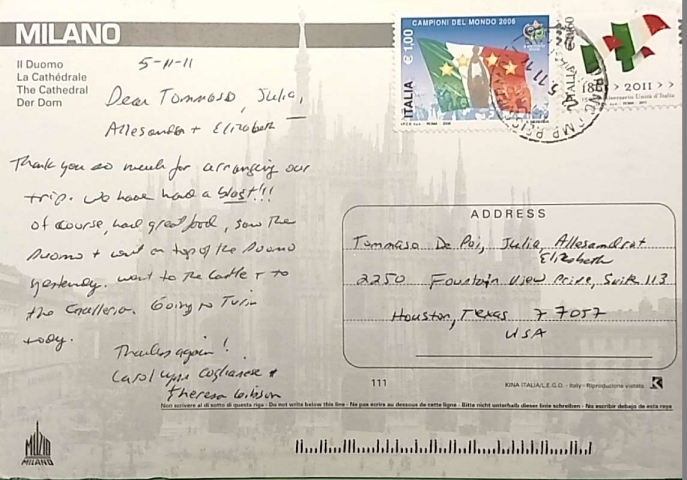 MILANO
Il Duomo
La Cathédrale
The Cathedral
Der Dom
5-11-11
Dear Tommaso, Julia,
Allesandra + Elizabeth
Thank you so much for arranging our
trip. We have had a blast!!!
Of course, had great food, saw the
Duomo + went on top of the Duomo
yesterday. Went to the Castle + to
the Galleria. Going to Turin
today.
Thanks again!
Carol Lynn +
Theresa
CAMPIONI DEL MONDO 2006
€1,00
ITALIA
ITALIA €0,60
2011 > >
Unità d'Italia
ADDRESS
Tommaso De Poi, Julia, Allesandra +
Elizabeth
2250 Fountain View Drive, Suite 113
Houston, Texas 77057
USA
111
KINA ITALIA/L.E.G.O. - Italy - Riproduzione vietata K
Non scrivere al di sotto di questa riga - Do not write below this line - Ne pas écrire au dessous de cette ligne - Bitte nicht unterhalb dieser linie schreiben - No escribir debajo de esta raya
MILANO